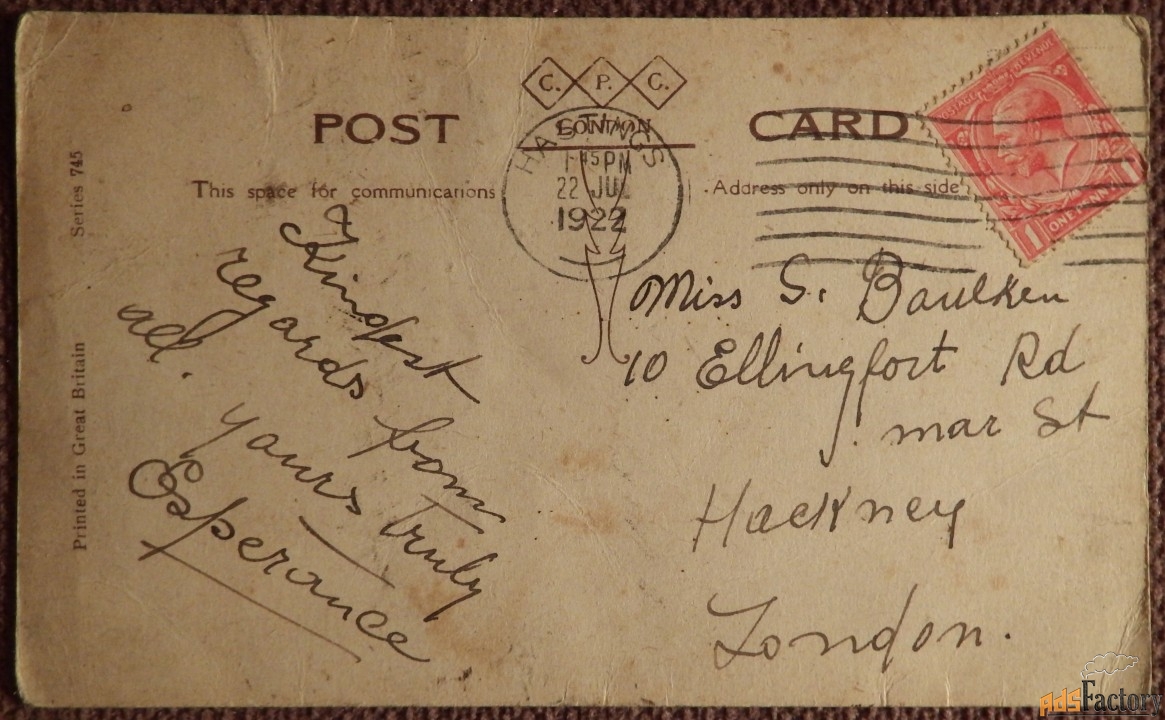 C. P. C.
POST CARD
LONDON
HASTINGS
1 45 PM
22 JUL
1922
POSTAGE REVENUE
1 ONE 1
This space for communications
Address only on this side
Series 745
Printed in Great Britain
Kindest
regards from
all.
yours truly
Esperance
Miss S. Baulken
10 Ellingfort Rd
mar St
Hackney
London.
AdsFactory